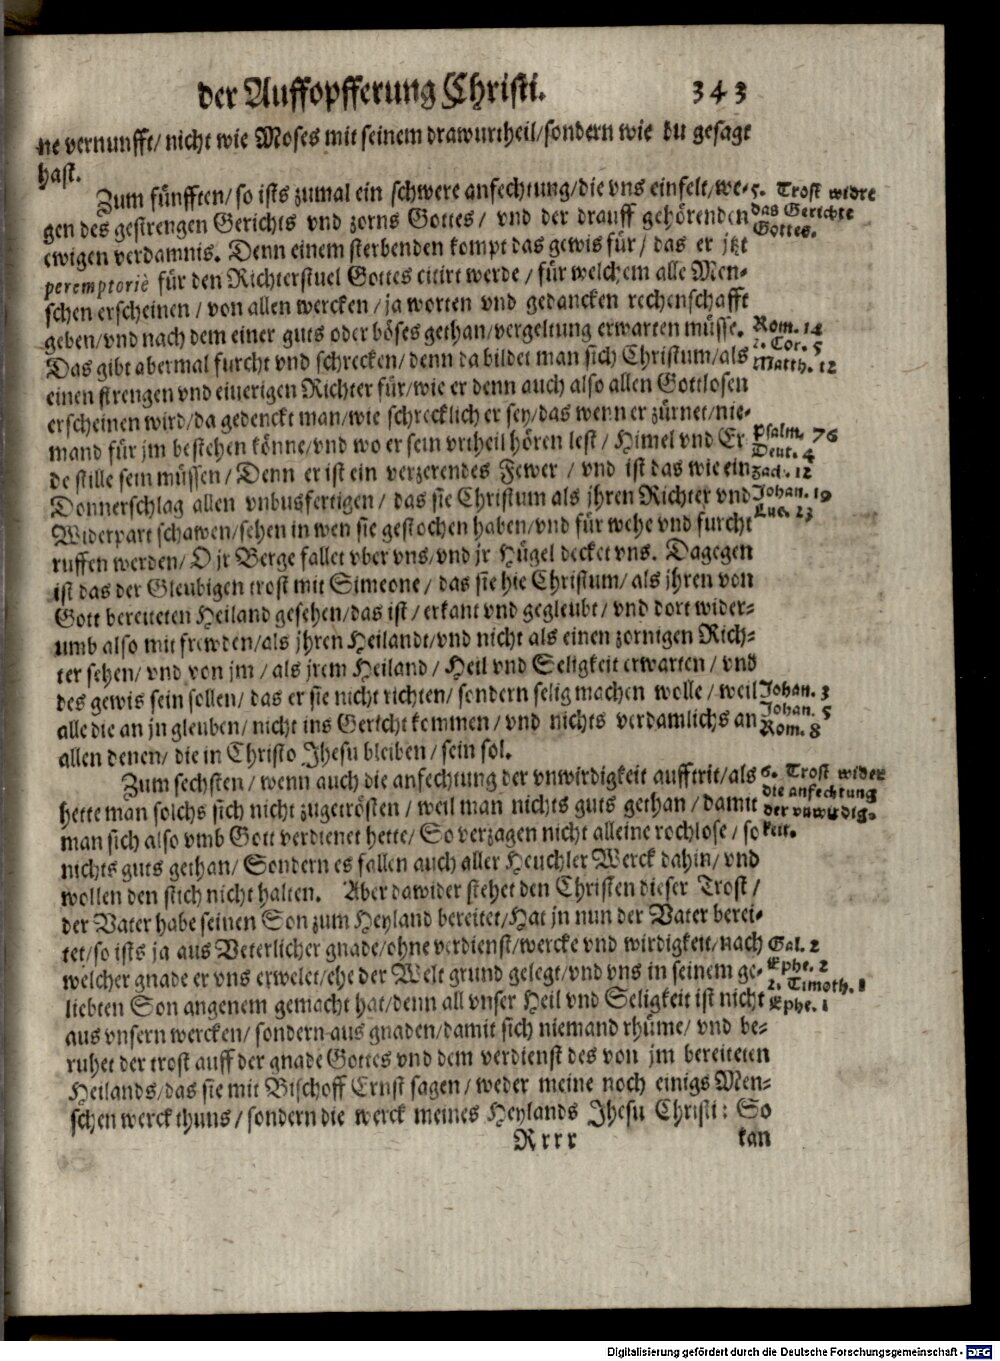 der Auffopfferung Christi. 343
ne vernunfft/ nicht wie Moses mit seinem drawurtheil/sondern wie du gesagt
hast.
Zum fünfften/ so ists zumal ein schwere anfechtung/die vns einfelt/we-
5. Trost widre
gen des gestrengen Gerichts vnd zorns Gottes/ vnd der drauff gehörenden
das Gerichte
Gottes.
ewigen verdamnis. Denn einem sterbenden kompt das gewis für/ das er jtzt
peremptoriè für den Richterstuel Gottes citirt werde/ für welchem alle Men-
schen erscheinen/ von allen wercken/ ja worten vnd gedancken rechenschafft
geben/vnd nach dem einer guts oder böses gethan/vergeltung erwarten müsse.
Rom. 14
2. Cor. 5
Das gibt abermal furcht vnd schrecken/ denn da bildet man sich Christum/als
Matth. 12
einen strengen vnd eiuerigen Richter für/wie er denn auch also allen Gottlosen
erscheinen wird/da gedenckt man/wie schrecklich er sey/das wenn er zürnet/nie-
mand für jm bestehen könne/vnd wo er sein vrtheil hören lest/ Himel vnd Er
Psalm. 76
Deut. 4
de stille sein müssen/ Denn er ist ein verzerendes Fewer/ vnd ist das wie ein
Zach. 12
Donnerschlag allen vnbusfertigen/ das sie Christum als jhren Richter vnd
Johan. 19
Luc. 23
Widerpart schawen/sehen in wen sie gestochen haben/vnd für wehe vnd furcht
ruffen werden/ O jr Berge fallet vber vns/vnd jr Hügel decket vns. Dagegen
ist das der Gleubigen trost mit Simeone/ das sie hie Christum/ als jhren von
Gott bereiteten Heiland gesehen/das ist/ erkant vnd gegleubt/ vnd dort wider-
umb also mit frewden/als jhren Heilandt/vnd nicht als einen zornigen Rich-
ter sehen/ vnd von jm/ als jrem Heiland/ Heil vnd Seligkeit erwarten/ vnd
des gewis sein sollen/ das er sie nicht richten/ sondern selig machen wolle/ weil
Johan. 3
Johan. 5
alle die an jn gleuben/ nicht ins Gericht kommen/ vnd nichts verdamlichs an
Rom. 8
allen denen/ die in Christo Jhesu bleiben/ sein sol.
Zum sechsten/ wenn auch die anfechtung der vnwirdigkeit aufftrit/als
6. Trost wider
die anfechtung
hette man solchs sich nicht zugetrösten/ weil man nichts guts gethan/ damit
der vnwirdig-
man sich also vmb Gott verdienet hette/ So verzagen nicht alleine rochlose/ so
keit.
nichts guts gethan/ Sondern es fallen auch aller Heuchler Werck dahin/ vnd
wollen den stich nicht halten. Aber dawider stehet den Christen dieser Trost/
der Vater habe seinen Son zum Heyland bereitet/Hat jn nun der Vater berei-
tet/so ists ja aus Veterlicher gnade/ohne verdienst/wercke vnd wirdigkeit/nach
Gal. 2
Ephe. 2
welcher gnade er vns erwelet/ehe der Welt grund gelegt/vnd vns in seinem ge-
2. Timoth. 1
liebten Son angenem gemacht hat/denn all vnser Heil vnd Seligkeit ist nicht
Ephe. 1
aus vnsern wercken/ sondern aus gnaden/damit sich niemand rhüme/ vnd be-
ruhet der trost auff der gnade Gottes vnd dem verdienst des von jm bereiteten
Heilands/das sie mit Bischoff Ernst sagen/ weder meine noch einigs Men-
schen werck thuns/ sondern die werck meines Heylands Jhesu Christi: So
Rrrr kan
Digitalisierung gefördert durch die Deutsche Forschungsgemeinschaft - DFG